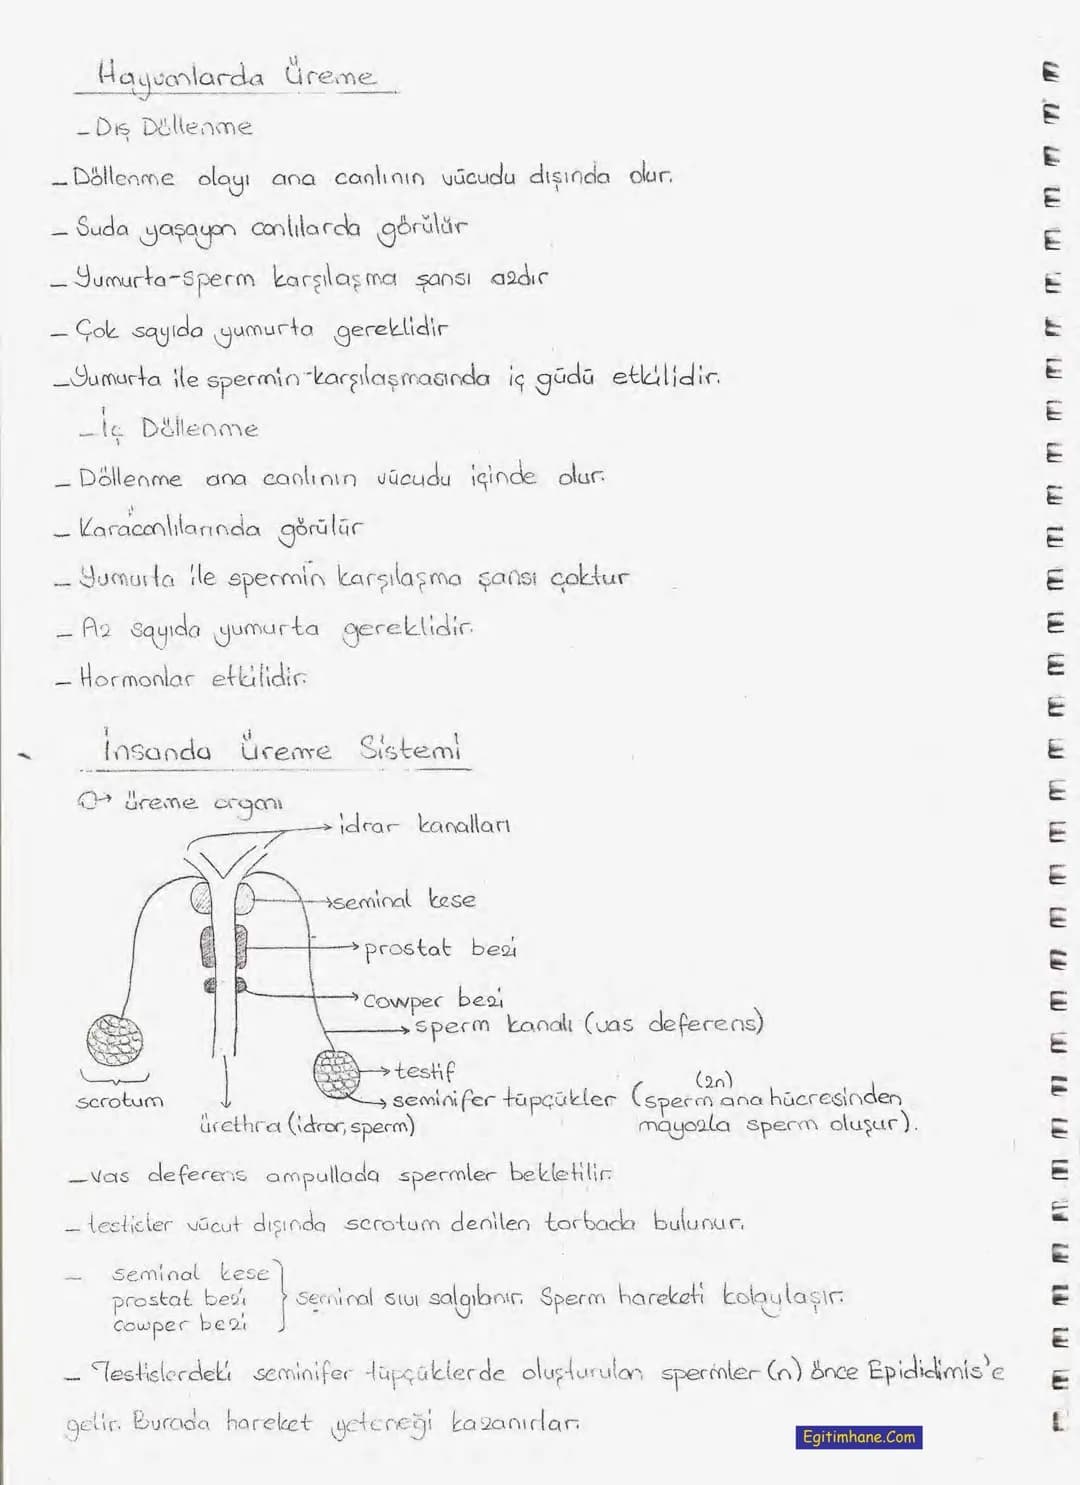 Hayvanlarda Üreme
- Dış Döllenme
- Döllenme olayı ana canlının vücudu dışında olur.
- Suda yaşayan canlılarda görülür
- Yumurta-sperm karşılaşma şansı azdır
- Çok sayıda yumurta gereklidir
- Yumurta ile spermin karşılaşmasında iç güdü etkilidir.
- İç Döllenme
- Döllenme ana canlının vücudu içinde olur.
- Kara canlılarında görülür
- Yumurta ile spermin karşılaşma şansı çoktur
- Az sayıda yumurta gereklidir.
- Hormonlar etkilidir.
İnsanda Üreme Sistemi
O→ üreme organı
→ idrar kanalları
→ seminal kese
→ prostat bezi
→ cowper bezi
→ sperm kanalı (vas deferens)
→ testif
(2n)
→ seminifer tüpçükler (sperm ana hücresinden
mayozla sperm oluşur).
scrotum
ürethra (idrar, sperm)
- vas deferens ampullada spermler bekletilir.
- testicler vücut dışında scrotum denilen torbada bulunur.
- seminal kese
prostat bezi } seminal sıvı salgılanır. Sperm hareketi kolaylaşır.
cowper bezi
- Testislerdeki seminifer tüpçüklerde oluşturulan spermler (n) önce Epididimis'e
gelir. Burada hareket yeteneği kazanırlar.
Egitimhane.Com